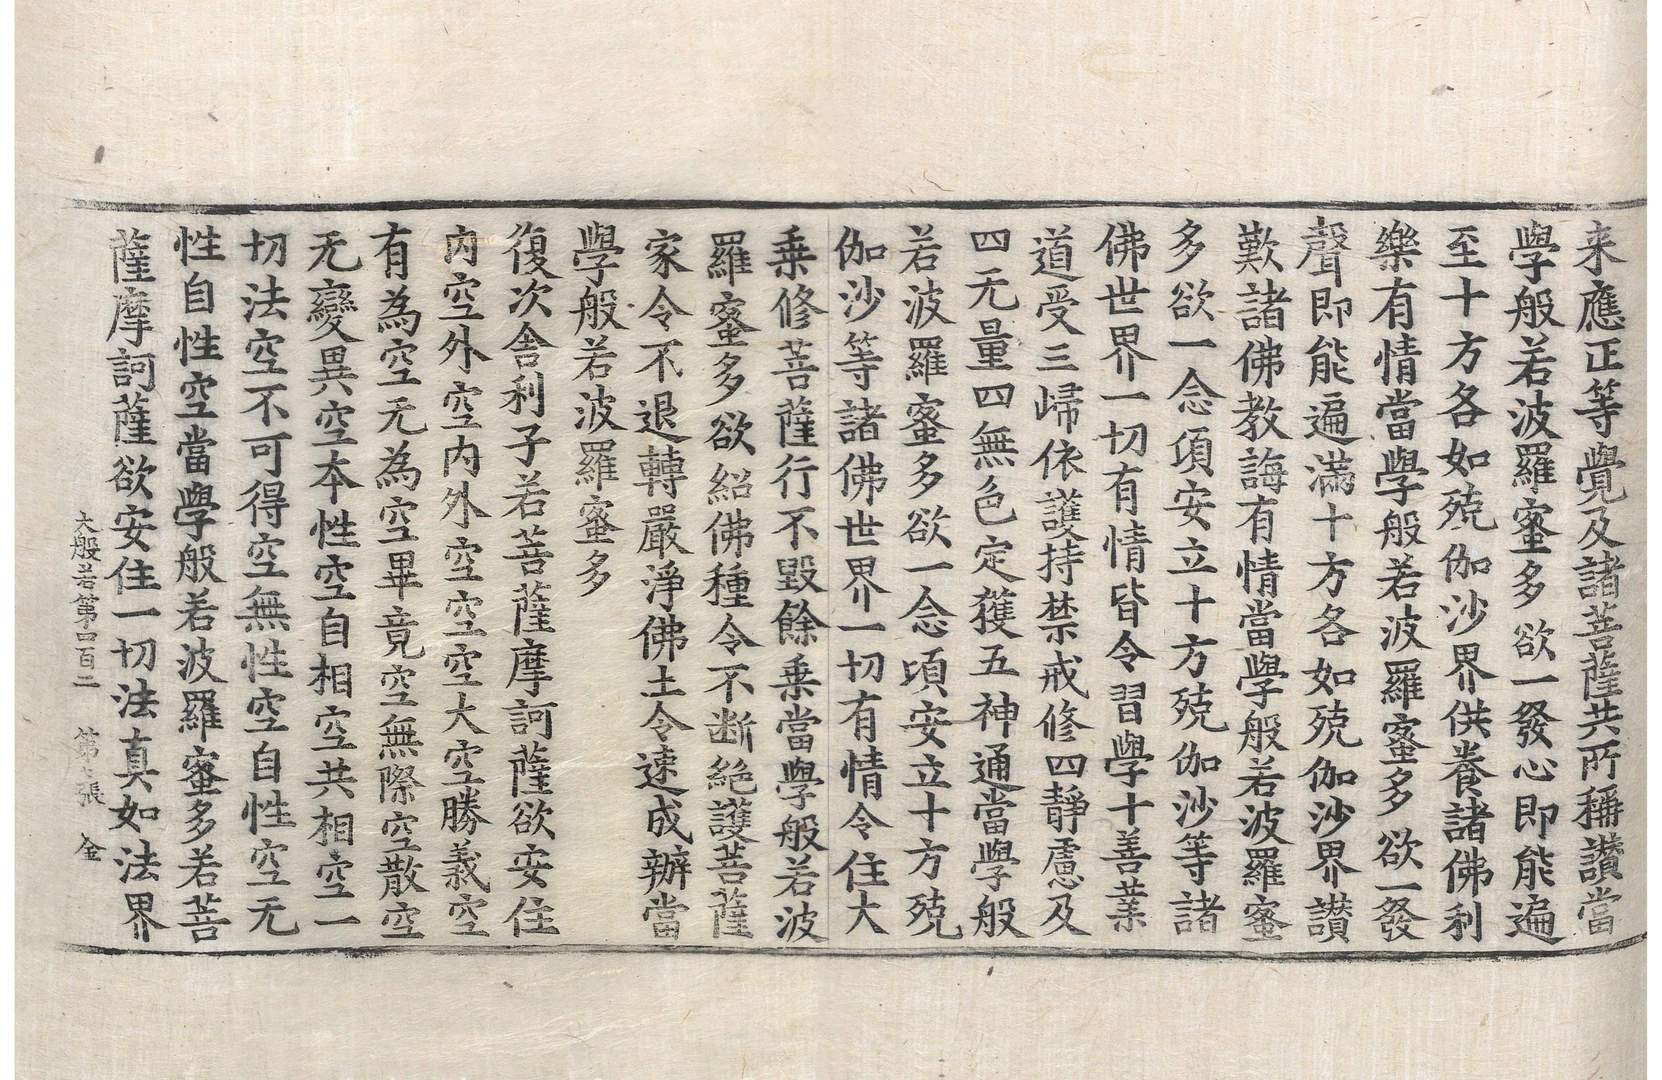 来應正等覺及諸菩薩共所稱讃當
學般若波羅蜜多欲一發心即能遍
至十方各如殑伽沙界供養諸佛利
樂有情當學般若波羅蜜多欲一發
聲即能遍滿十方各如殑伽沙界讃
歎諸佛教誨有情當學般若波羅蜜
多欲一念頃安立十方殑伽沙等諸
佛世界一切有情皆令習學十善業
道受三歸依護持禁戒修四靜慮及
四无量四無色定獲五神通當學般
若波羅蜜多欲一念頃安立十方殑
伽沙等諸佛世界一切有情令住大
乗修菩薩行不毀餘乗當學般若波
羅蜜多欲紹佛種令不断絕護菩薩
家令不退轉嚴淨佛土令速成辦當
學般若波羅蜜多
復次舍利子若菩薩摩訶薩欲安住
內空外空內外空空空大空勝義空
有為空无為空畢竟空無際空散空
无變異空本性空自相空共相空一
切法空不可得空無性空自性空无
性自性空當學般若波羅蜜多若菩
薩摩訶薩欲安住一切法真如法界
大般若第四百二 第 張 金